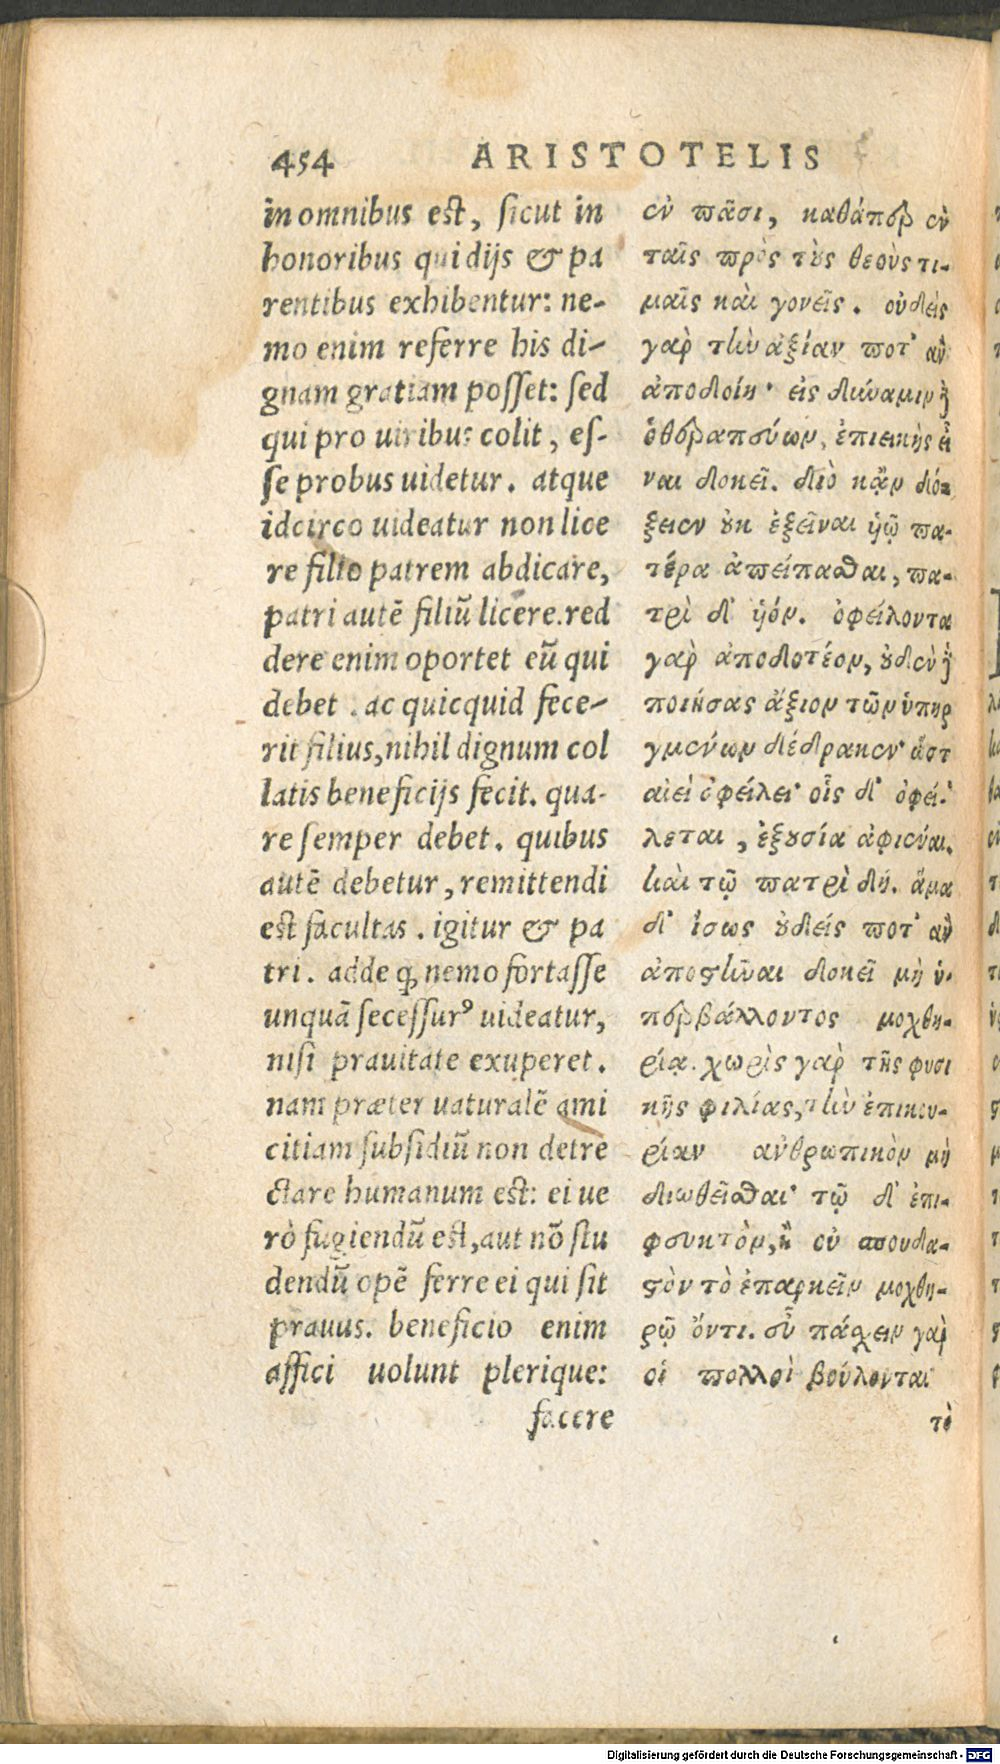 454 ARISTOTELIS
in omnibus est, sicut in
honoribus qui dijs & pa
rentibus exhibentur: ne-
mo enim referre his di-
gnam gratiam posset: sed
qui pro uiribus colit, es-
se probus uidetur. atque
idcirco uideatur non lice
re filio patrem abdicare,
patri autẽ filiũ licere. red
dere enim oportet eũ qui
debet. ac quicquid fece-
rit filius, nihil dignum col
latis beneficijs fecit. qua-
re semper debet. quibus
autẽ debetur, remittendi
est facultas. igitur & pa
tri. adde ꝙ nemo fortasse
unquã secessurꝰ uideatur,
nisi prauitate exuperet.
nam præter uaturalẽ ami
citiam subsidiũ non detre
ctare humanum est: ei ue
rò fugiendũ est, aut nõ stu
dendũ opẽ ferre ei qui sit
prauus. beneficio enim
affici uolunt plerique:
facere
ἐν πᾶσι, καθάπερ ἐν
ταῖς πρὸς τοὺς θεοὺς τι-
μαῖς καὶ γονεῖς. οὐδεὶς
γαρ τὴν ἀξίαν ποτ' ἂν
ἀποδοίη· εἰς δύναμιν δὲ
ὁ θεραπεύων, ἐπιεικὴς εἶ
ναι δοκεῖ. διὸ κᾂν δό-
ξειεν οὐκ ἐξεῖναι ὑῷ πα-
τέρα ἀπείπασθαι, πα-
τρὶ δ' ὑόν. ὀφείλοντα
γαρ ἀποδοτέον, οὐδὲν δὲ
ποιήσας ἄξιον τῶν ὑπηρ
γμένων δέδρακεν· ὥστ
αἰεὶ ὀφείλει· οἷς δ' ὀφεί-
λεται, ἐξουσία ἀφιέναι.
καὶ τῷ πατρὶ δή. ἅμα
δ' ἴσως οὐδείς ποτ' ἂν
ἀποστῆναι δοκεῖ μὴ ὑ-
περβάλλοντος μοχθη-
ρίᾳ. χωρὶς γαρ τῆς φυσι
κῆς φιλίας, τὴν ἐπικου-
ρίαν ἀνθρωπικὸν μὴ
διωθεῖσθαι· τῷ δ' ἐπι-
φευκτὸν, ἢ οὐ σπουδα-
στὸν τὸ ἐπαρκεῖν μοχθη-
ρῷ ὄντι. εὖ πάσχειν γαρ
οἱ πολλοὶ βούλονται
τὸ
Digitalisierung gefördert durch die Deutsche Forschungsgemeinschaft - DFG